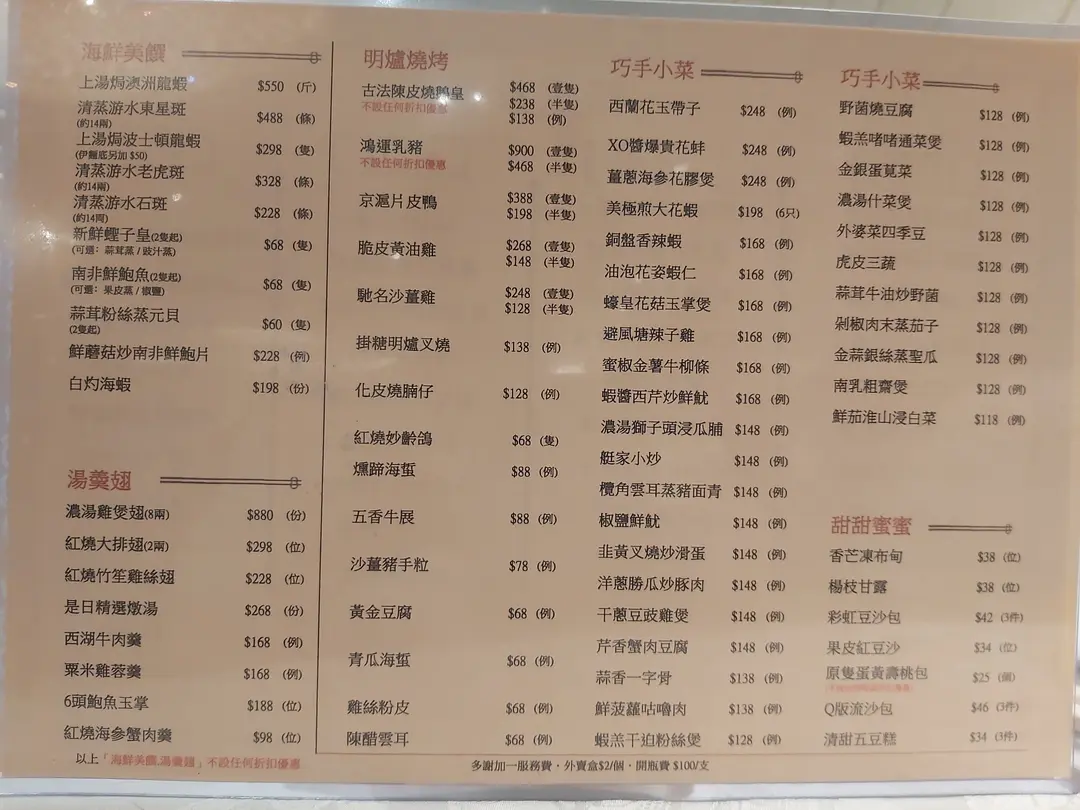 海鮮美饌
上湯焗澳洲龍蝦 $550 (斤)
清蒸游水東星斑 $488 (條)
(約14兩)
上湯焗波士頓龍蝦 $298 (隻)
(伊麵底另加 $50)
清蒸游水老虎斑 $328 (條)
(約14兩)
清蒸游水石斑 $228 (條)
(約14両)
新鮮蟶子皇(2隻起) $68 (隻)
(可選：蒜茸蒸 / 豉汁蒸)
南非鮮鮑魚(2隻起) $68 (隻)
(可選：果皮蒸 / 椒鹽)
蒜茸粉絲蒸元貝 $60 (隻)
(2隻起)
鮮蘑菇炒南非鮮鮑片 $228 (例)
白灼海蝦 $198 (份)
湯羹翅
濃湯雞煲翅(8兩) $880 (份)
紅燒大排翅(2兩) $298 (位)
紅燒竹笙雞絲翅 $228 (位)
是日精選燉湯 $268 (份)
西湖牛肉羹 $168 (例)
粟米雞蓉羹 $168 (例)
6頭鮑魚玉掌 $188 (位)
紅燒海參蟹肉羹 $98 (位)
以上「海鮮美饌,湯羹翅」不設任何折扣優惠
明爐燒烤
古法陳皮燒鵝皇 $468 (壹隻)
不設任何折扣優惠 $238 (半隻)
$138 (例)
鴻運乳豬 $900 (壹隻)
不設任何折扣優惠 $468 (半隻)
京滬片皮鴨 $388 (壹隻)
$198 (半隻)
脆皮黃油雞 $268 (壹隻)
$148 (半隻)
馳名沙薑雞 $248 (壹隻)
$128 (半隻)
掛糖明爐叉燒 $138 (例)
化皮燒腩仔 $128 (例)
紅燒妙齡鴿 $68 (隻)
燻蹄海蜇 $88 (例)
五香牛展 $88 (例)
沙薑豬手粒 $78 (例)
黃金豆腐 $68 (例)
青瓜海蜇 $68 (例)
雞絲粉皮 $68 (例)
陳醋雲耳 $68 (例)
巧手小菜
西蘭花玉帶子 $248 (例)
XO醬爆貴花蚌 $248 (例)
薑蔥海參花膠煲 $248 (例)
美極煎大花蝦 $198 (6只)
銅盤香辣蝦 $168 (例)
油泡花姿蝦仁 $168 (例)
蠔皇花菇玉掌煲 $168 (例)
避風塘辣子雞 $168 (例)
蜜椒金薯牛柳條 $168 (例)
蝦醬西芹炒鮮魷 $168 (例)
濃湯獅子頭浸瓜脯 $148 (例)
艇家小炒 $148 (例)
欖角雲耳蒸豬面青 $148 (例)
椒鹽鮮魷 $148 (例)
韭黃叉燒炒滑蛋 $148 (例)
洋蔥勝瓜炒豚肉 $148 (例)
干蔥豆豉雞煲 $148 (例)
芹香蟹肉豆腐 $148 (例)
蒜香一字骨 $138 (例)
鮮菠蘿咕嚕肉 $138 (例)
蝦羔干迫粉絲煲 $128 (例)
巧手小菜
野菌燒豆腐 $128 (例)
蝦羔啫啫通菜煲 $128 (例)
金銀蛋莧菜 $128 (例)
濃湯什菜煲 $128 (例)
外婆菜四季豆 $128 (例)
虎皮三蔬 $128 (例)
蒜茸牛油炒野菌 $128 (例)
剁椒肉末蒸茄子 $128 (例)
金蒜銀絲蒸聖瓜 $128 (例)
南乳粗齋煲 $128 (例)
鮮茄淮山浸白菜 $118 (例)
甜甜蜜蜜
香芒凍布甸 $38 (位)
楊枝甘露 $38 (位)
彩虹豆沙包 $42 (3件)
果皮紅豆沙 $34 (位)
原隻蛋黃壽桃包 $25 (個)
Q版流沙包 $46 (3件)
清甜五豆糕 $34 (3件)
多謝加一服務費・外賣盒$2/個・開瓶費 $100/支